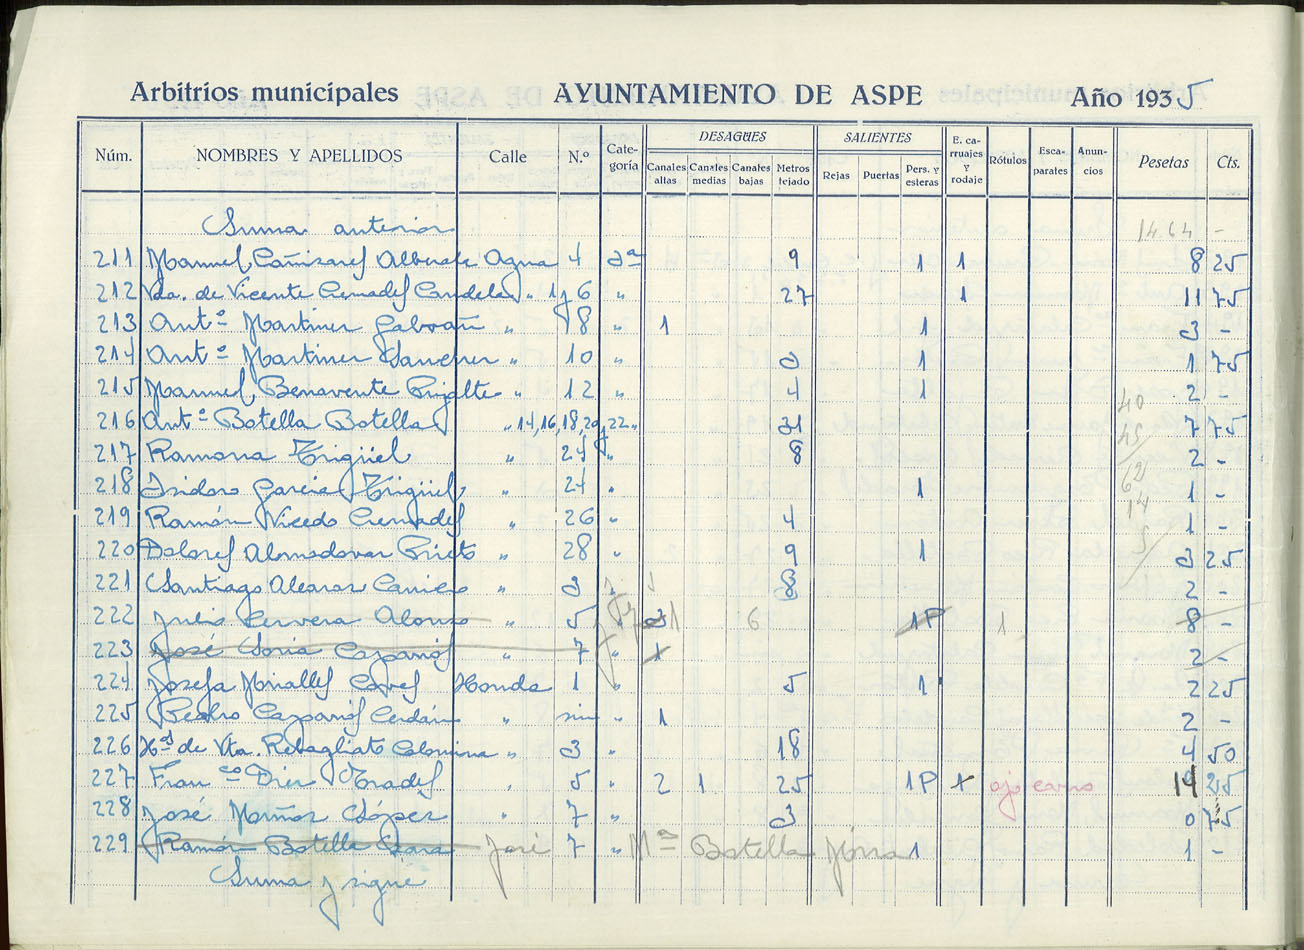 Arbitrios municipales AYUNTAMIENTO DE ASPE Año 1935
Núm. NOMBRES Y APELLIDOS Calle N.º Categoría DESAGÜES SALIENTES E. carruajes y rodaje Rótulos Escaparates Anuncios Pesetas Cts.
Canales altas Canales medias Canales bajas Metros tejado Rejas Puertas Pers. y esteras
Suma anterior 1464 -
211 Manuel Cañizares Alberola Agua 4 3ª 9 1 1 8 25
212 Vda. de Vicente Cremades Candela " 1 y 6 " 27 1 11 75
213 Antº Martinez Galvañ " 8 " 1 1 3 -
214 Antº Martinez " 10 " 3 1 1 75
215 Manuel Benavente " 12 " 4 1 2 -
216 Antº Botella Botella " 14, 16, 18, 20 y 22 " 31 7 75
217 Ramona Trigüel " 24 " 8 2 -
218 Isidoro Garcia Trigüel " 24 " 1 1 -
219 Ramón Vicedo Cremades " 26 " 4 1 -
220 Dolores Almodovar Prieto " 28 " 9 1 3 25
221 Santiago Alcaraz " 3 " 8 2 -
222 Julio Cervera Alonso " 5 " 3 1 6 1P 1 8 -
223 José Soria Caparrós " 7 " 1 2 -
224 Josefa Miralles Honda 1 " 5 1 2 25
225 Pedro Caparrós Cerdán " sin " 1 2 -
226 Hº de Vta. Rebagliato Colomina " 3 " 18 4 50
227 Franco Diez Prades " 5 " 2 1 25 1P + ojo carro 14 25
228 José Muñoz López " 7 " 3 0 75
229 Ramón Botella José 7 " Mª Botella 1 1 -
Suma y sigue
40
45
62
14